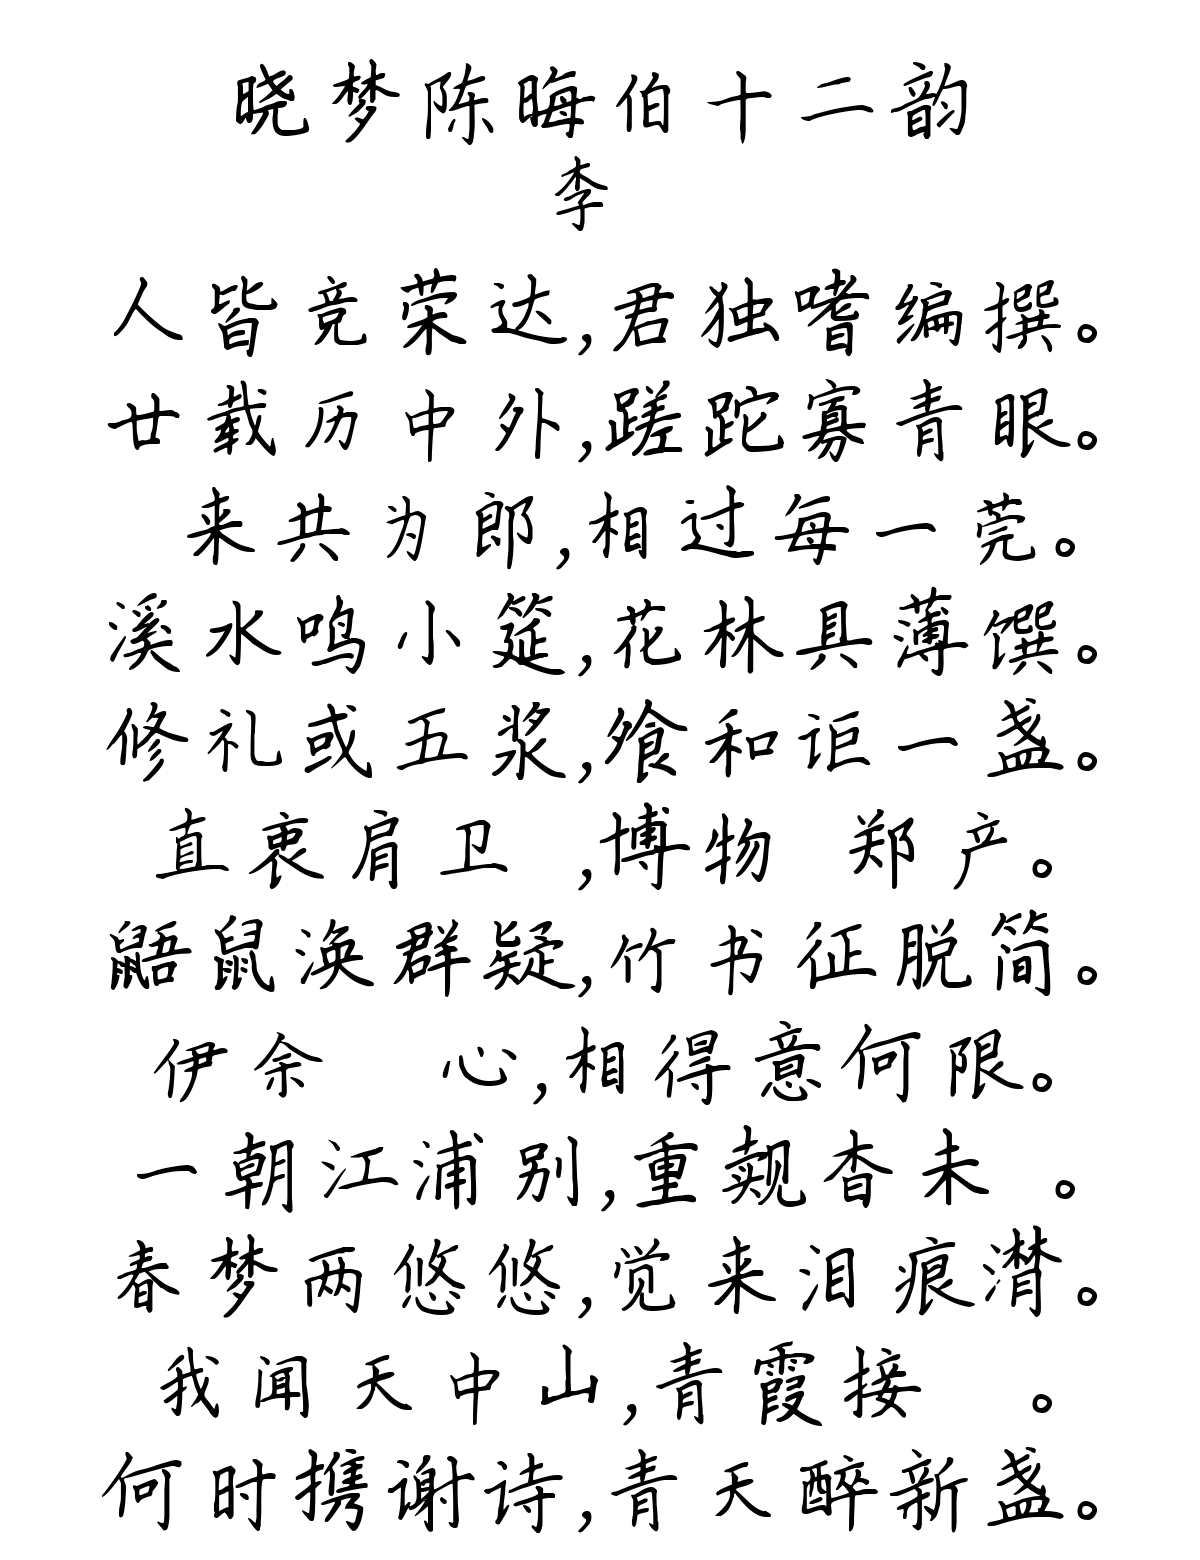 晓梦陈晦伯十二韵
李
人皆竞荣达,君独嗜编撰。
廿载历中外,蹉跎寡青眼。
来共为郎,相过每一莞。
溪水鸣小筵,花林具薄馔。
修礼或五浆,飧和讵一盏。
直衷肩卫 ,博物 郑产。
鼯鼠涣群疑,竹书征脱简。
伊余 心,相得意何限。
一朝江浦别,重觌杳未 。
春梦两悠悠,觉来泪痕潸。
我闻天中山,青霞接 。
何时携谢诗,青天醉新盏。